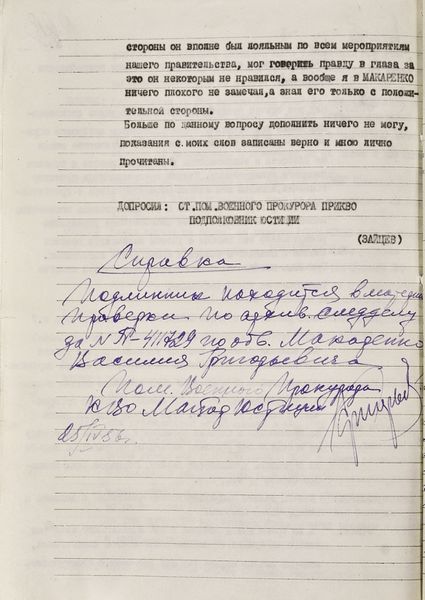 стороны он вполне был лояльным по всем мероприятиям
нашего правительства, мог говорить правду в глаза за
это он некоторым не нравился, а вообще я в МАКАРЕНКО
ничего плохого не замечал,а знал его только с положи-
тельной стороны.
Больше по данному вопросу дополнить ничего не могу,
показания с моих слов записаны верно и мною лично
прочитаны.
ДОПРОСИЛ: СТ.ПОМ.ВОЕННОГО ПРОКУРОРА ПРИКВО
ПОДПОЛКОВНИК ЮСТИЦИИ
(ЗАЙЦЕВ)
Справка
Подлинник находится в
проверки по архив. следделу
за № П-411729 по обв. Макаренко
Василия Григорьевича
Пом. Военного Прокурора
КВО Майор Юстиции